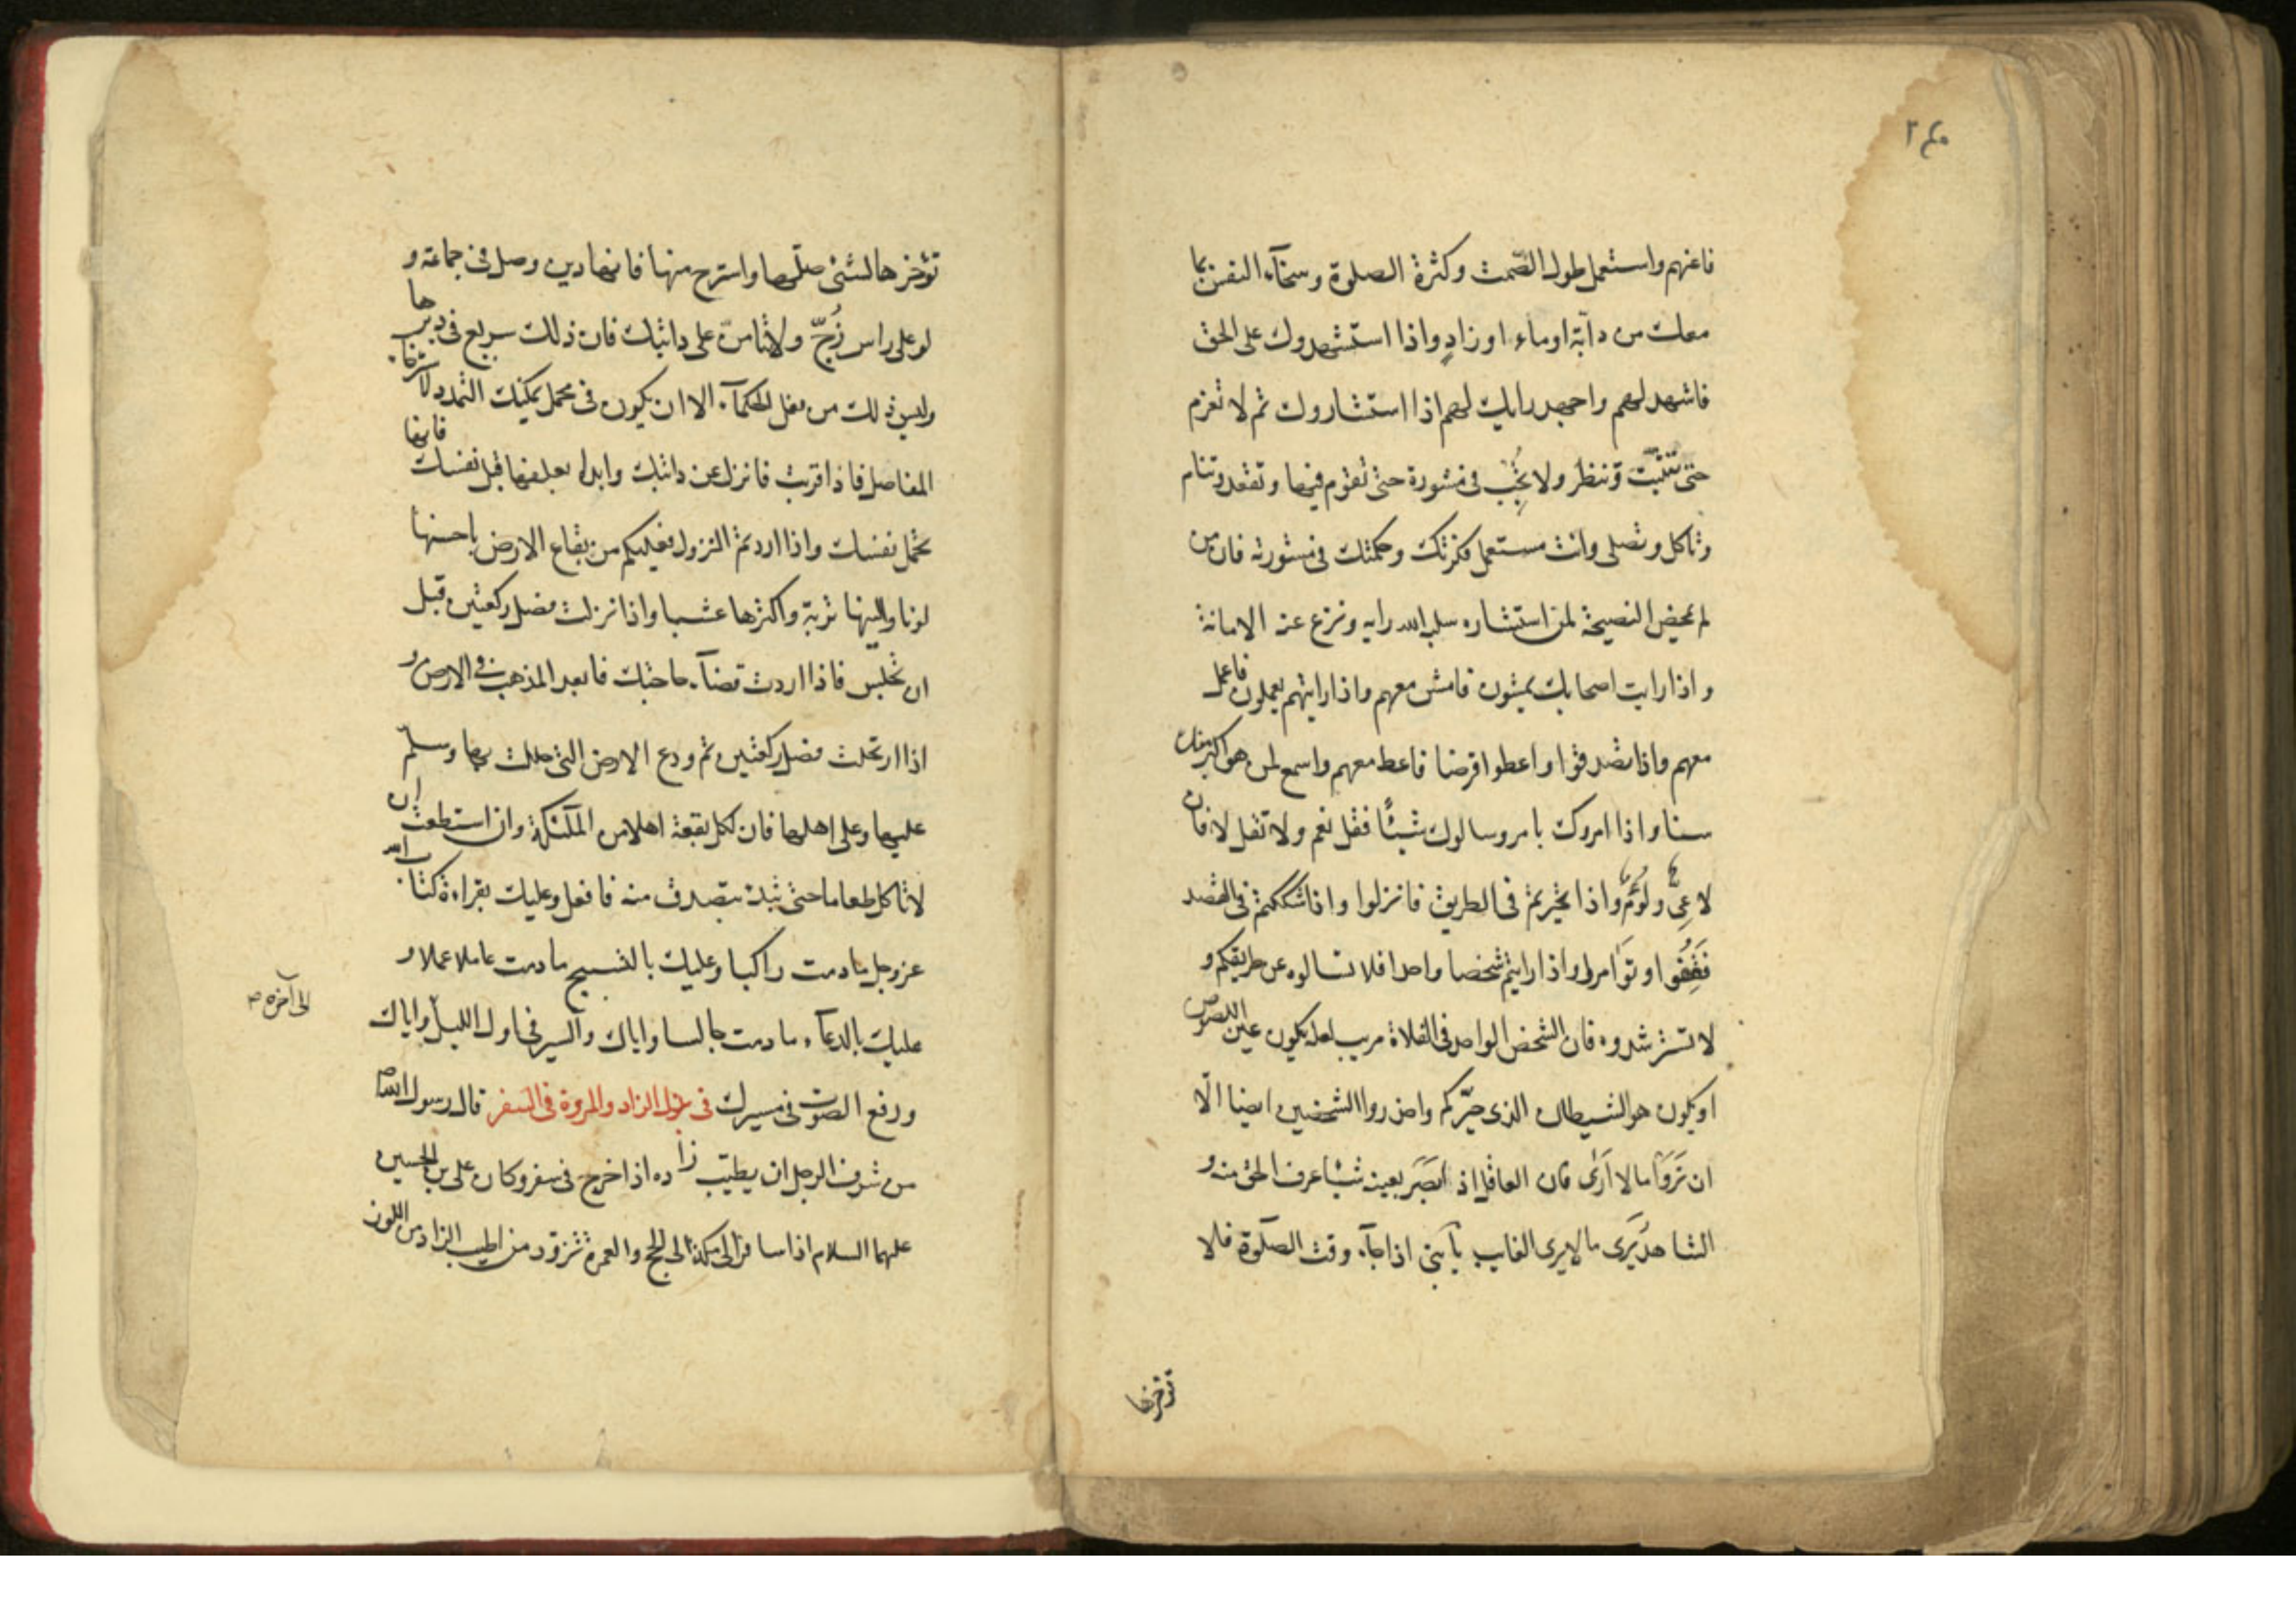 فاغنهم واستعمل طول الصّمت وكثرة الصلوة وسخآء النفس بما
معك من دآبّة اوماء او زادٍ واذا استشهدوك على الحق
فاشهد لهم واجهد رايك لهم اذا استشاروك ثم لا تعزم
حتى تثبّت وتنظر ولا تجب فى مشورة حتى تقوم فيها وتقعد وتنام
وتاكل وتصلى وانت مستعمل فكرتك وحكمتك فى مشورته فان من
لم يمحض النصيحة لمن استشاره سلبه الله رايه ونزع عنه الامانة
واذا رايت اصحابك يمشون فامش معهم واذا رايتهم يعملون فاعمل
معهم واذا تصدقوا واعطوا قرضا فاعط معهم واسمع لمن هو اكبر منك
سنا واذا امروك بامر وسالوك شيئًا فقل نعم ولا تقل لا فان
لا عِىٌّ ولُؤمٌ واذا تحيرتم فى الطريق فانزلوا واذا شككتم فى القصد
فَقِفُوا وتوَامروا واذا رايتم شخصا واحدا فلا تسالوه عن طريقكم و
لا تسترشدوه فان الشخص الواحد فى الفلاة مريب لعله يكون عين اللصوص
او يكون هو الشيطان الذى حيّركم واحذروا الشخصين ايضا الّا
ان تَرَوْا ما لا اَرَى فان العاقل اذ اَبصَرَ بعينه شيئا عرف الحق منه و
الشاهد يَرَى ما لا يرى الغايب يا بنى اذا جآء وقت الصلٰوة فلا
تؤخرها
تؤخرها لشئ صلّها واسترح منها فانها دين وصل فى جماعة و
لو على راس زُجّ ولا تنامنّ على دابتك فان ذلك سريع فى دبرها
وليس ذلك من فعل الحكمآء الا ان يكون فى محمل يمكنك التمدد لاسترخاء
المفاصل فاذا قربت فانزل عن دابتك وابدا بعلفها قبل نفسك فانها
تحمل نفسك واذا اردتم النزول فعليكم من بقاع الارض باحسنها
لونا والينها تربة واكثرها عشبا واذا نزلت فصل ركعتين قبل
ان تجلس فاذا اردت قضآء حاجتك فابعد المذهب فى الارض و
اذا ارتحلت فصل ركعتين ثم ودع الارض التى حللت بها وسلّم
عليها وعلى اهلها فان لكل بقعة اهلا من الملٰئكة وان استطعت ان
لا تاكل طعاما حتى تبدء بتصدق منه فافعل وعليك بقراءة كتاب الله
عز وجل ما دمت راكبا وعليك بالتسبيح ما دمت عاملا عملا و
عليك بالدعآء ما دمت جالسا واياك والسير فى اول الليل واياك
الى آخره ص
ورفع الصوت فى مسيرك فى بذل الزاد والمروة فى السفر قال رسول الله ص
من شرف الرجل ان يطيّب زاده اذا خرج فى سفر وكان على بن الحسين
عليهما السلام اذا سافر الى مكة الى الحج والعمرة تزود من اطيب الزاد من اللوز